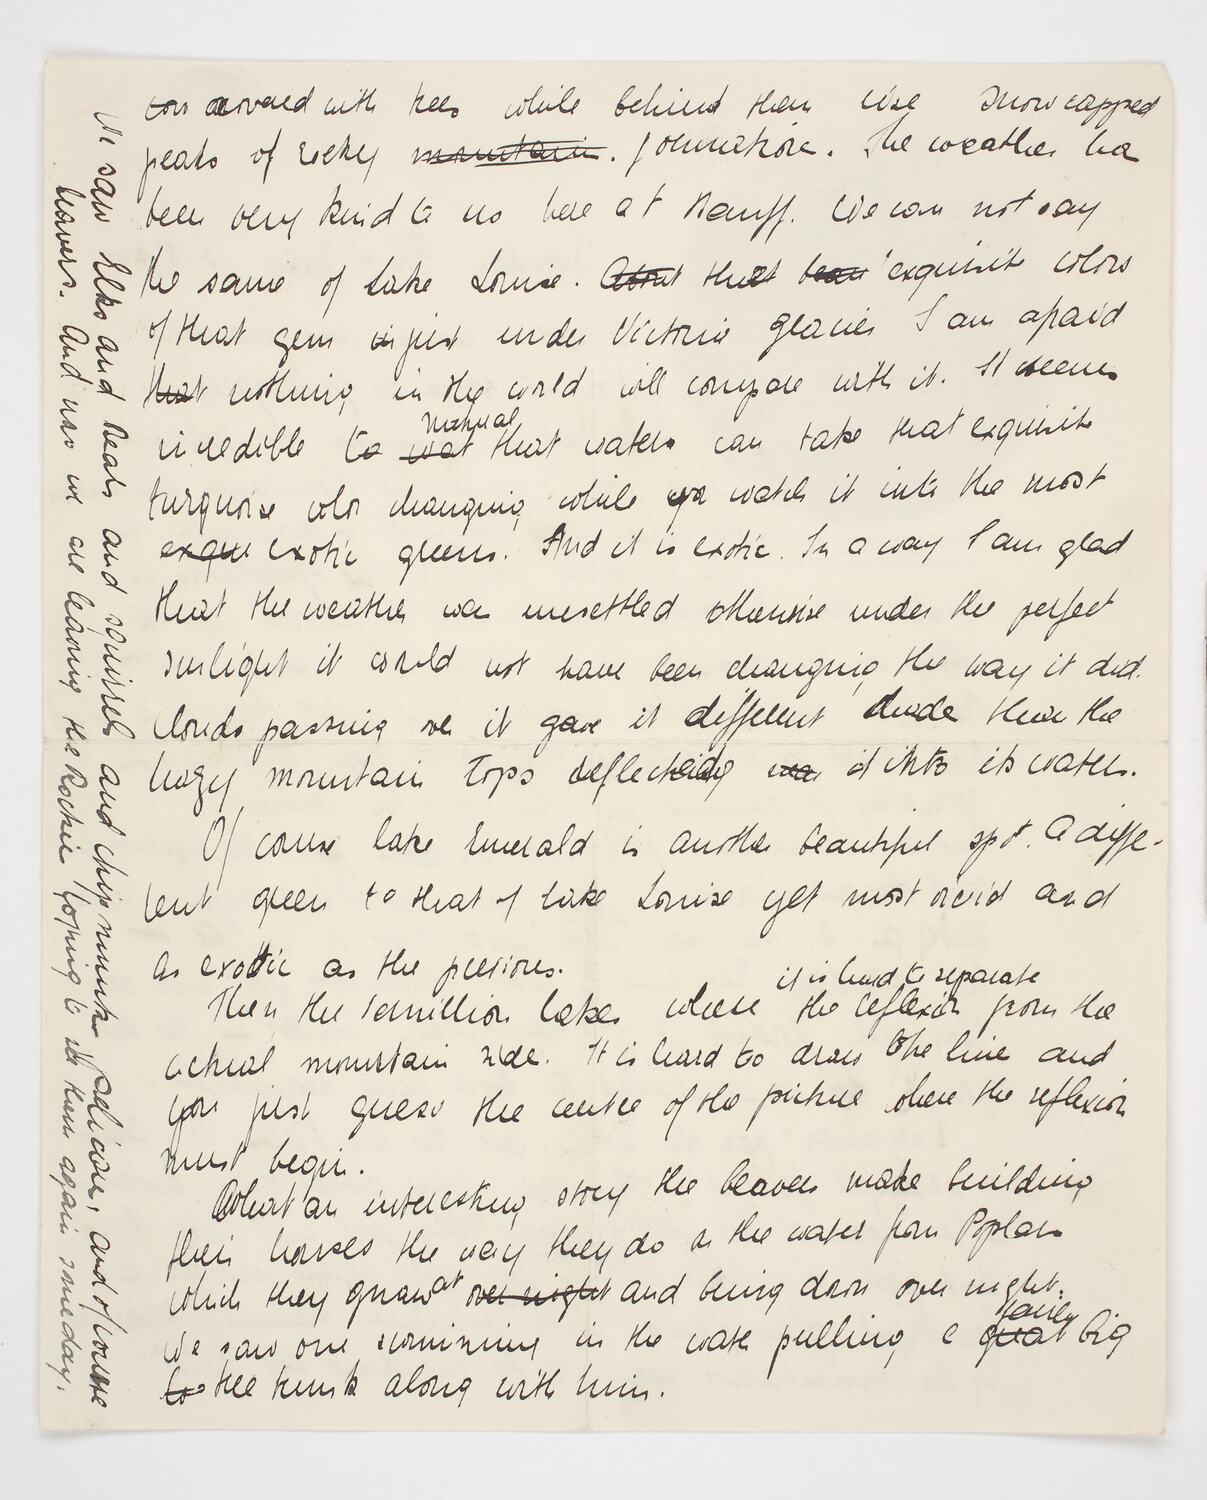 covered with trees while behind them rise snow capped
peaks of rocky mountain. formation. The weather has
been very kind to us here at Banff. We can not say
the same of Lake Louise. About that exquisite colors
of that gem in just under Victoria glacier I am afraid
that nothing in the world will compare with it. It seems
incredible to wat natural that waters can take that exquisite
turquoise color changing while you watch it into the most
exqui exotic greens. And it is exotic. In a way I am glad
that the weather was unsettled otherwise under the perfect
sunlight it could not have been changing the way it did.
Clouds passing over it gave it different shade then the
hazy mountain tops reflecting it into its waters.
Of course lake Emerald is another beautiful spot. A diffe-
rent green to that of Lake Louise yet most vivid and
as exotic as the previous.
it is hard to separate
Then the Vermillion lakes where the reflexion from the
actual mountain side. It is hard to draw the line and
you just guess the centre of the picture where the reflexion
must begin.
What an interesting story the beavers make building
their houses the way they do in the water from Poplars
which they gnaw at over night and bring down over night.
We saw one swimming in the water pulling a great fairly big
tree trunk along with him.
We saw Elks and Bears and squirrels and chipmunks Pelicans, and of course
beavers. And now we are leaving the Rockies hoping to see them again someday.